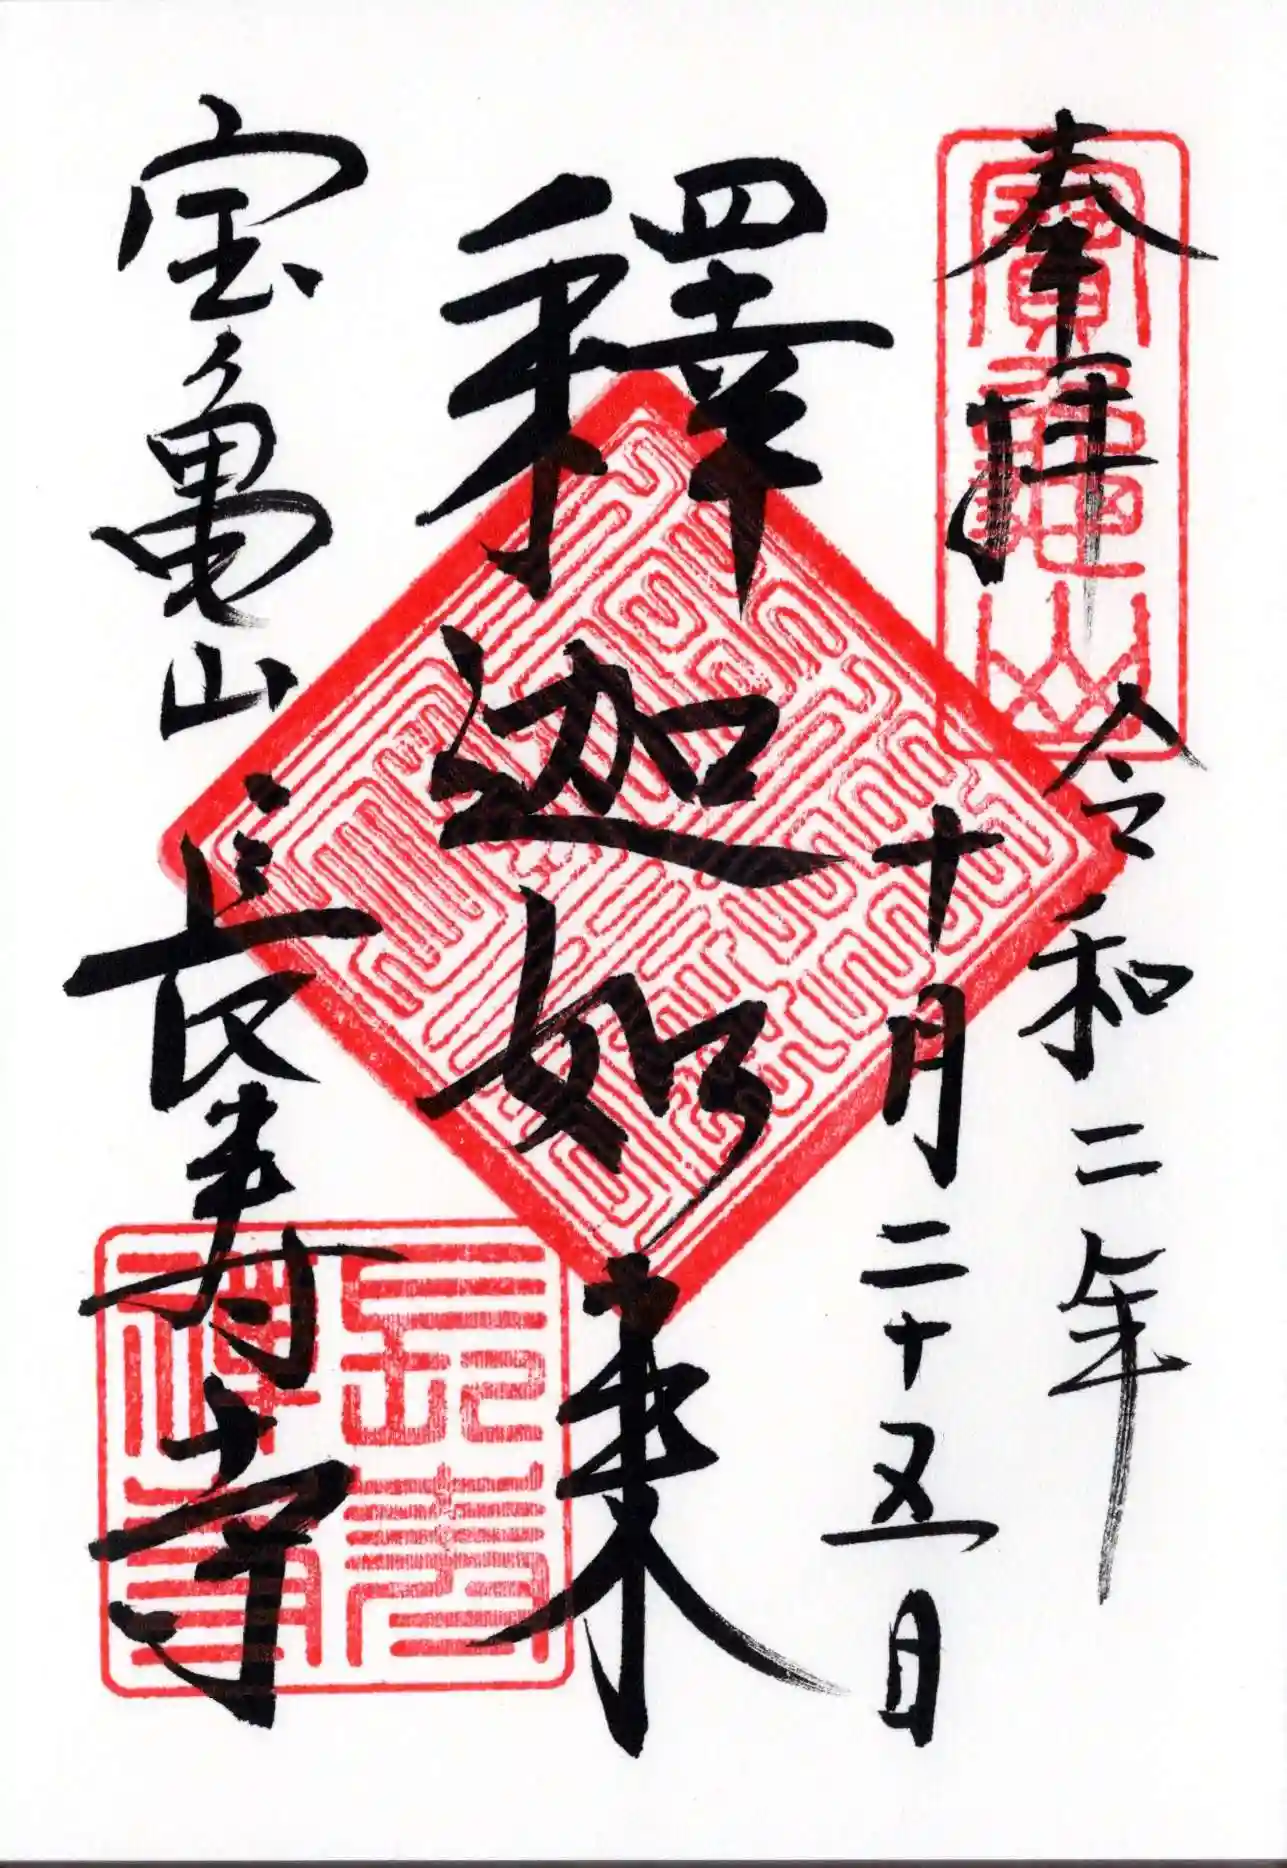 奉拝
令和二年
十月二十五日
釋迦如来
宝亀山長寿寺
寶龜山
長壽禅寺